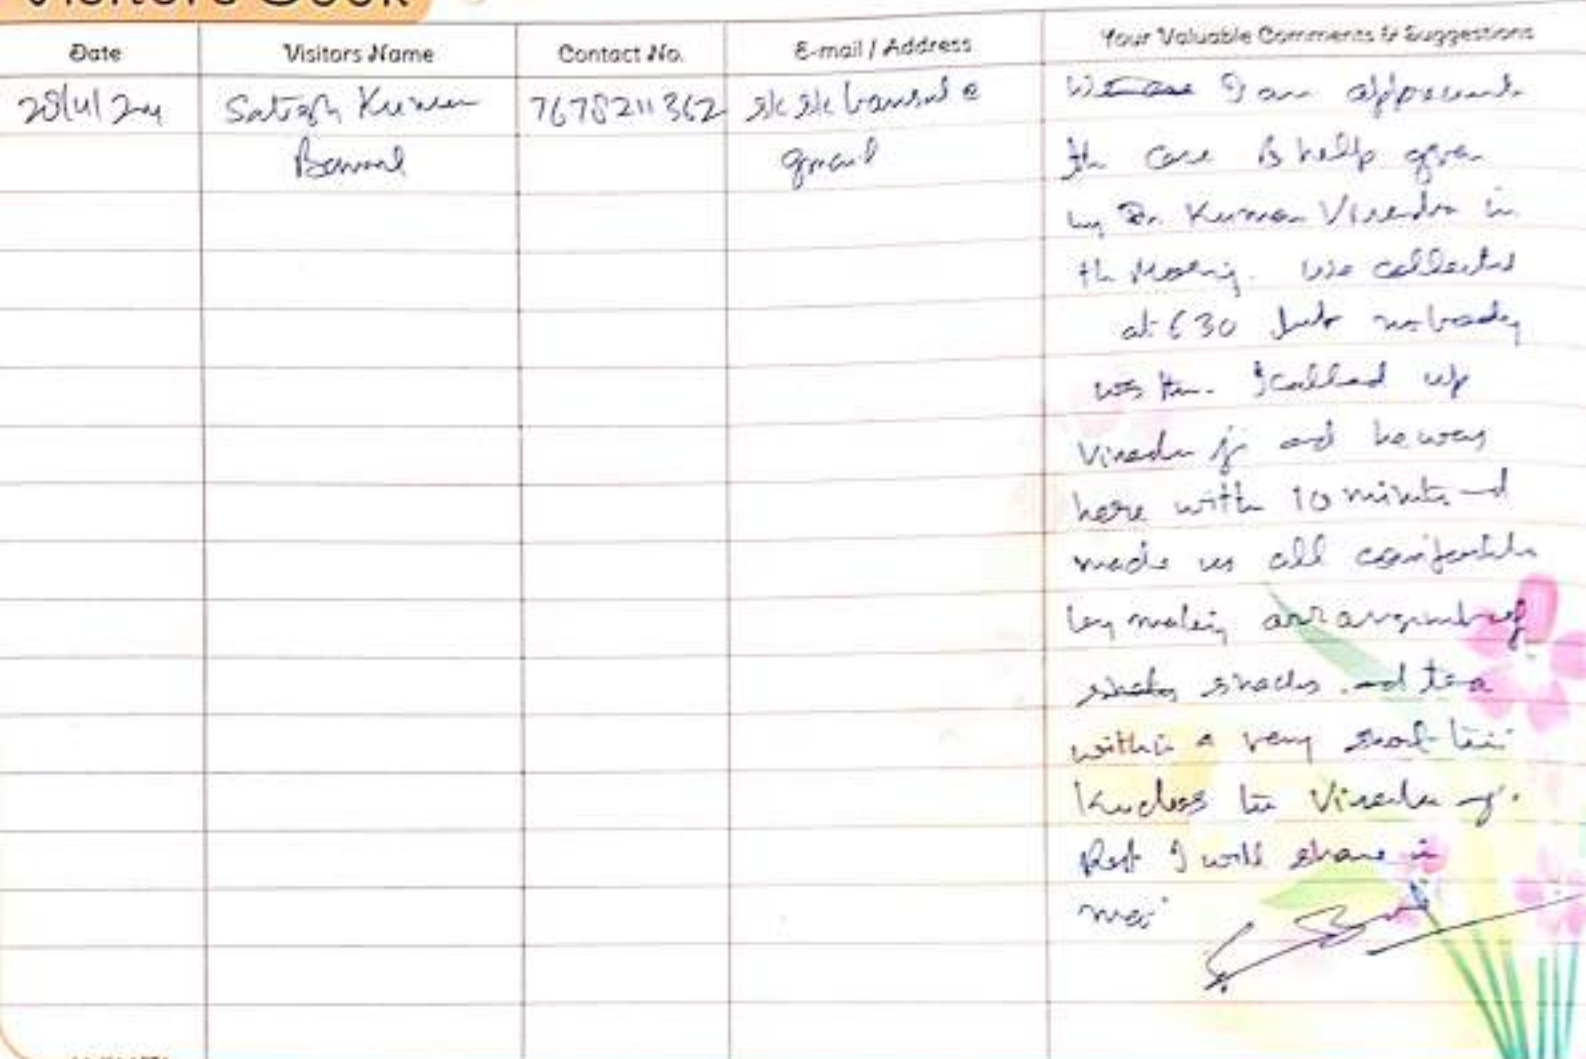 Visitors Book
Date Visitors Name Contact No. E-mail / Address Your Valuable Comments & Suggestions
Satish Kumar 7678211362 sksk bansal @
Bansal gmail
I am
the care & help given
by Dr. Kumar Virendra in
the We collected
at 630 but nobody
was I called up
Virendra ji and he was
here with 10 minute and
made us all comfortable
by making arrangement of
snacks and tea
within a very short
Virendra ji.
Rest I will share in